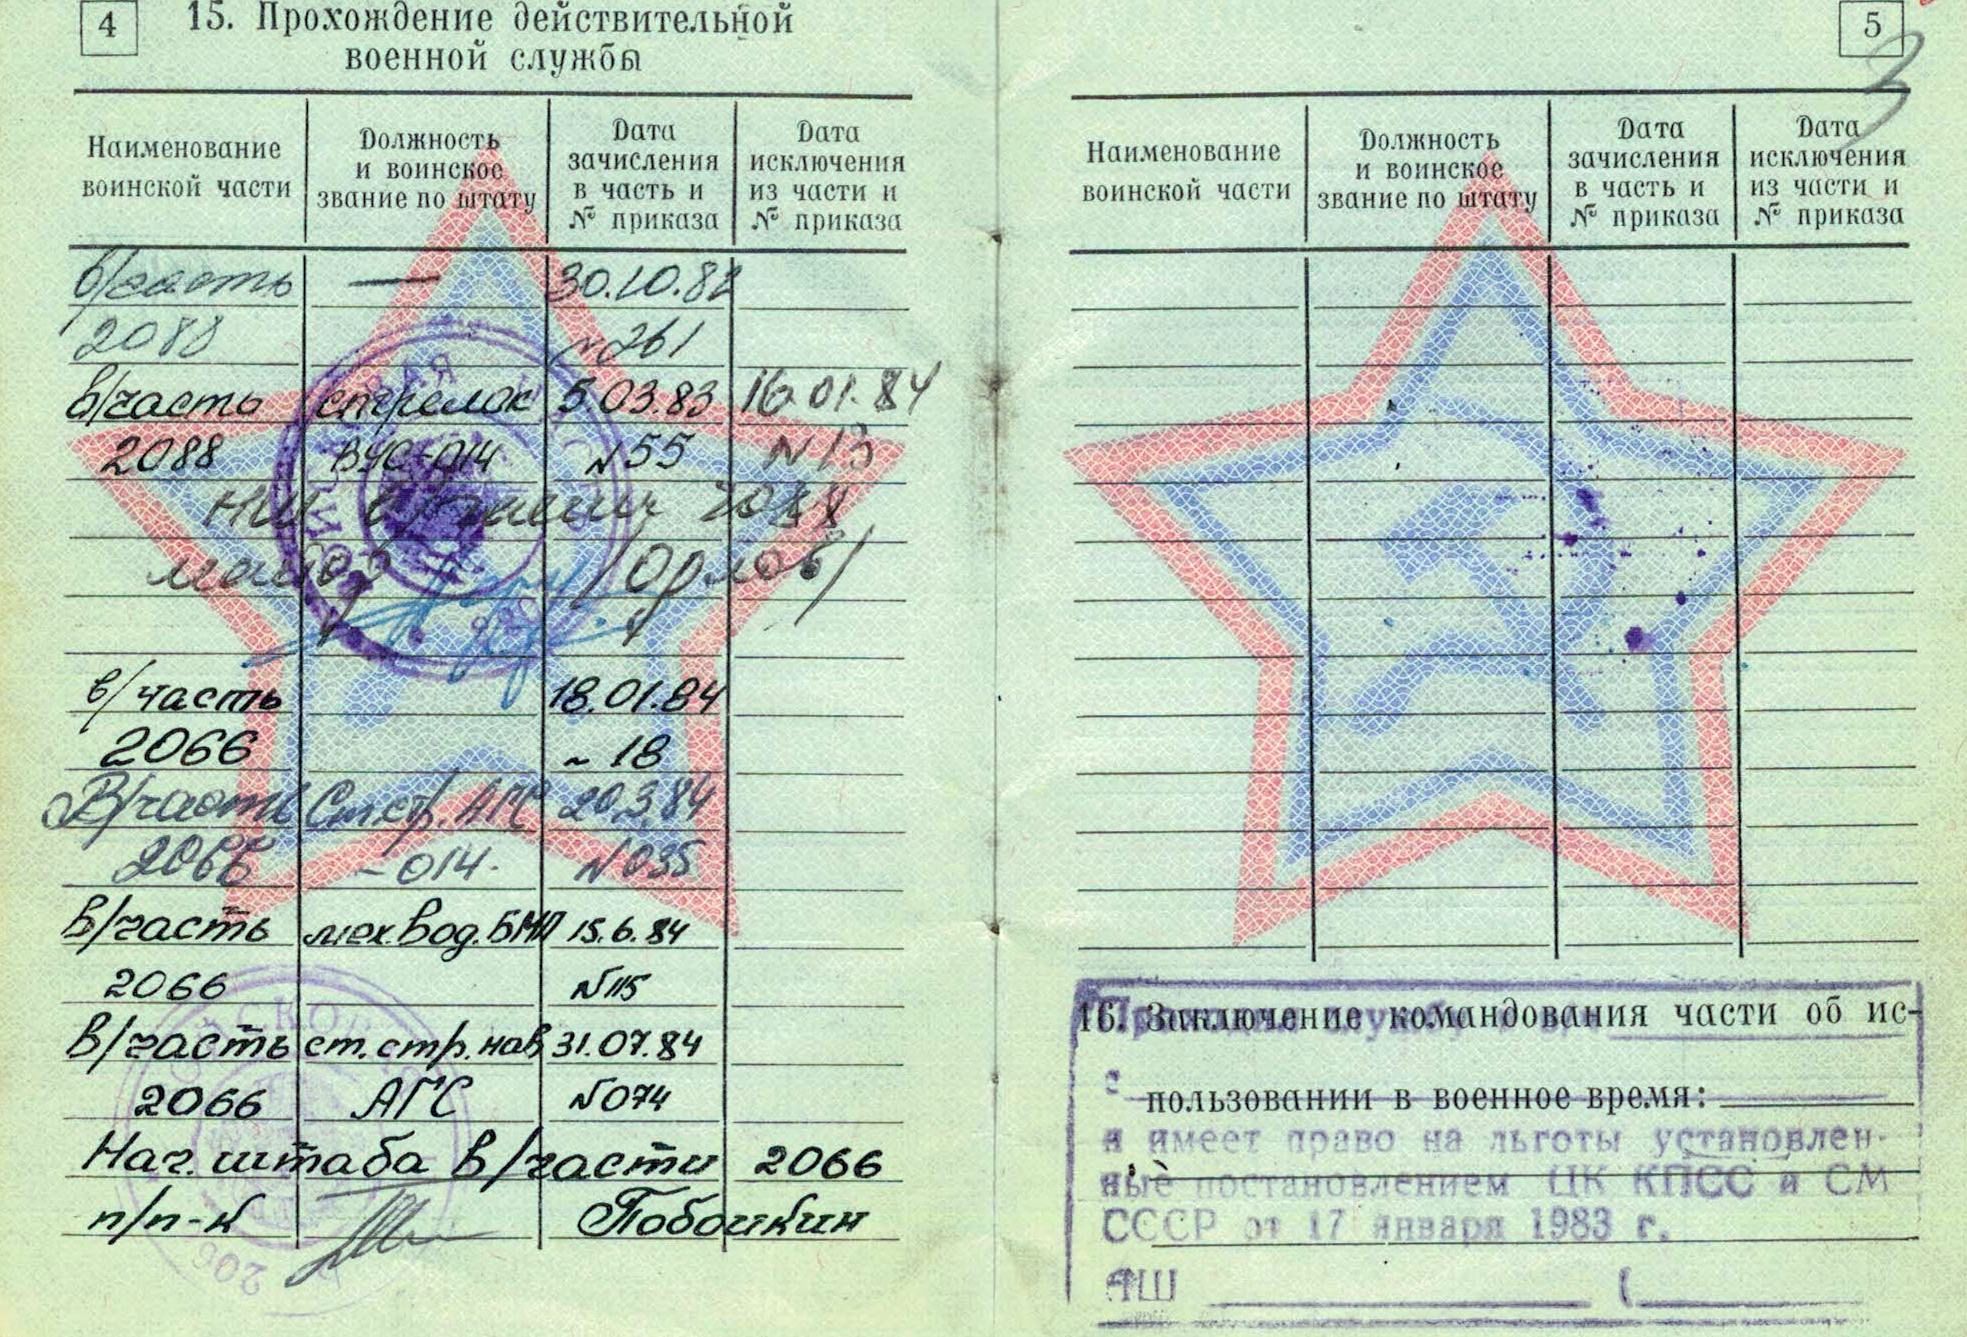 4
15. Прохождение действительной
военной службы
Наименование
воинской части
Должность
и воинское
звание по штату
Дата
зачисления
в часть и
№ приказа
Дата
исключения
из части и
№ приказа
в/часть — 30.10.82
2088 №261
в/часть стрелок 5.03.83 16.01.84
2088 ВУС-014 №55 №13
НШ в/части 2088
майор /Орлов/
в/часть 18.01.84
2066 ~ 18
В/часть Ст.стр. АГС 20.3.84
2066 -014- №035
в/часть мех.вод. БМП 15.6.84
2066 №115
в/часть ст.стр.нав 31.07.84
2066 АГС №074
Нач. штаба в/части 2066
п/п-к Побойкин
5
3
Наименование
воинской части
Должность
и воинское
звание по штату
Дата
зачисления
в часть и
№ приказа
Дата
исключения
из части и
№ приказа
16. Заключение командования части об ис-
пользовании в военное время:
с
и имеет право на льготы установлен-
ные постановлением ЦК КПСС и СМ
СССР от 17 января 1983 г.
НШ (